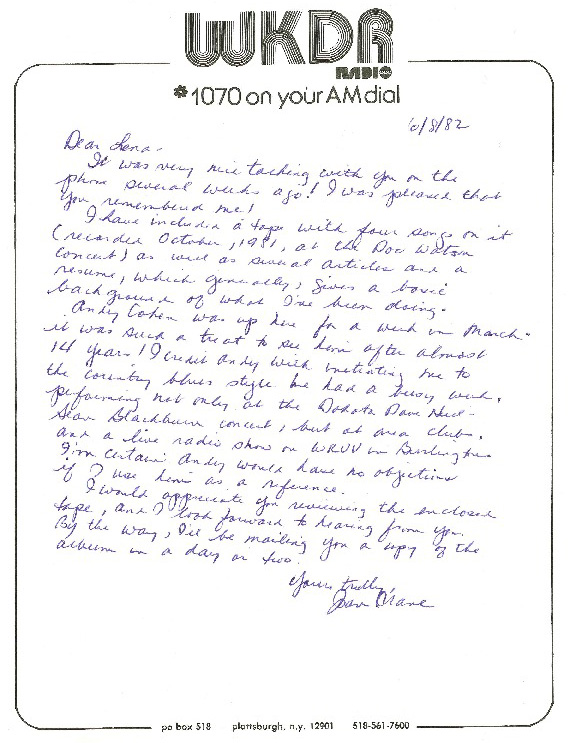 WKDR
RADIO
*1070 on your AM dial
6/8/82
Dear Lena-
It was very nice talking with you on the
phone several weeks ago! I was pleased that
you remembered me!
I have included a tape with four songs on it
(recorded October, 1981, at the Doc Watson
concert) as well as several articles and a
resume, which generally, gives a basic
background of what I've been doing.
Andy Cohen was up here for a week in March-
it was such a treat to see him after almost
14 years! I credit Andy with initiating me to
the country blues style. he had a busy week,
performing not only at the Dakota Dave Hull-
Sean Blackburn concert, but at area clubs,
and a live radio show on WRUV in Burlington.
I'm certain Andy would have no objections
if I use him as a reference.
I would appreciate you reviewing the enclosed
tape, and I look forward to hearing from you.
By the way, I'll be mailing you a copy of the
album in a day or two.
Yours truly,
Joan Crane
po box 518 plattsburgh, n.y. 12901 518-561-7600